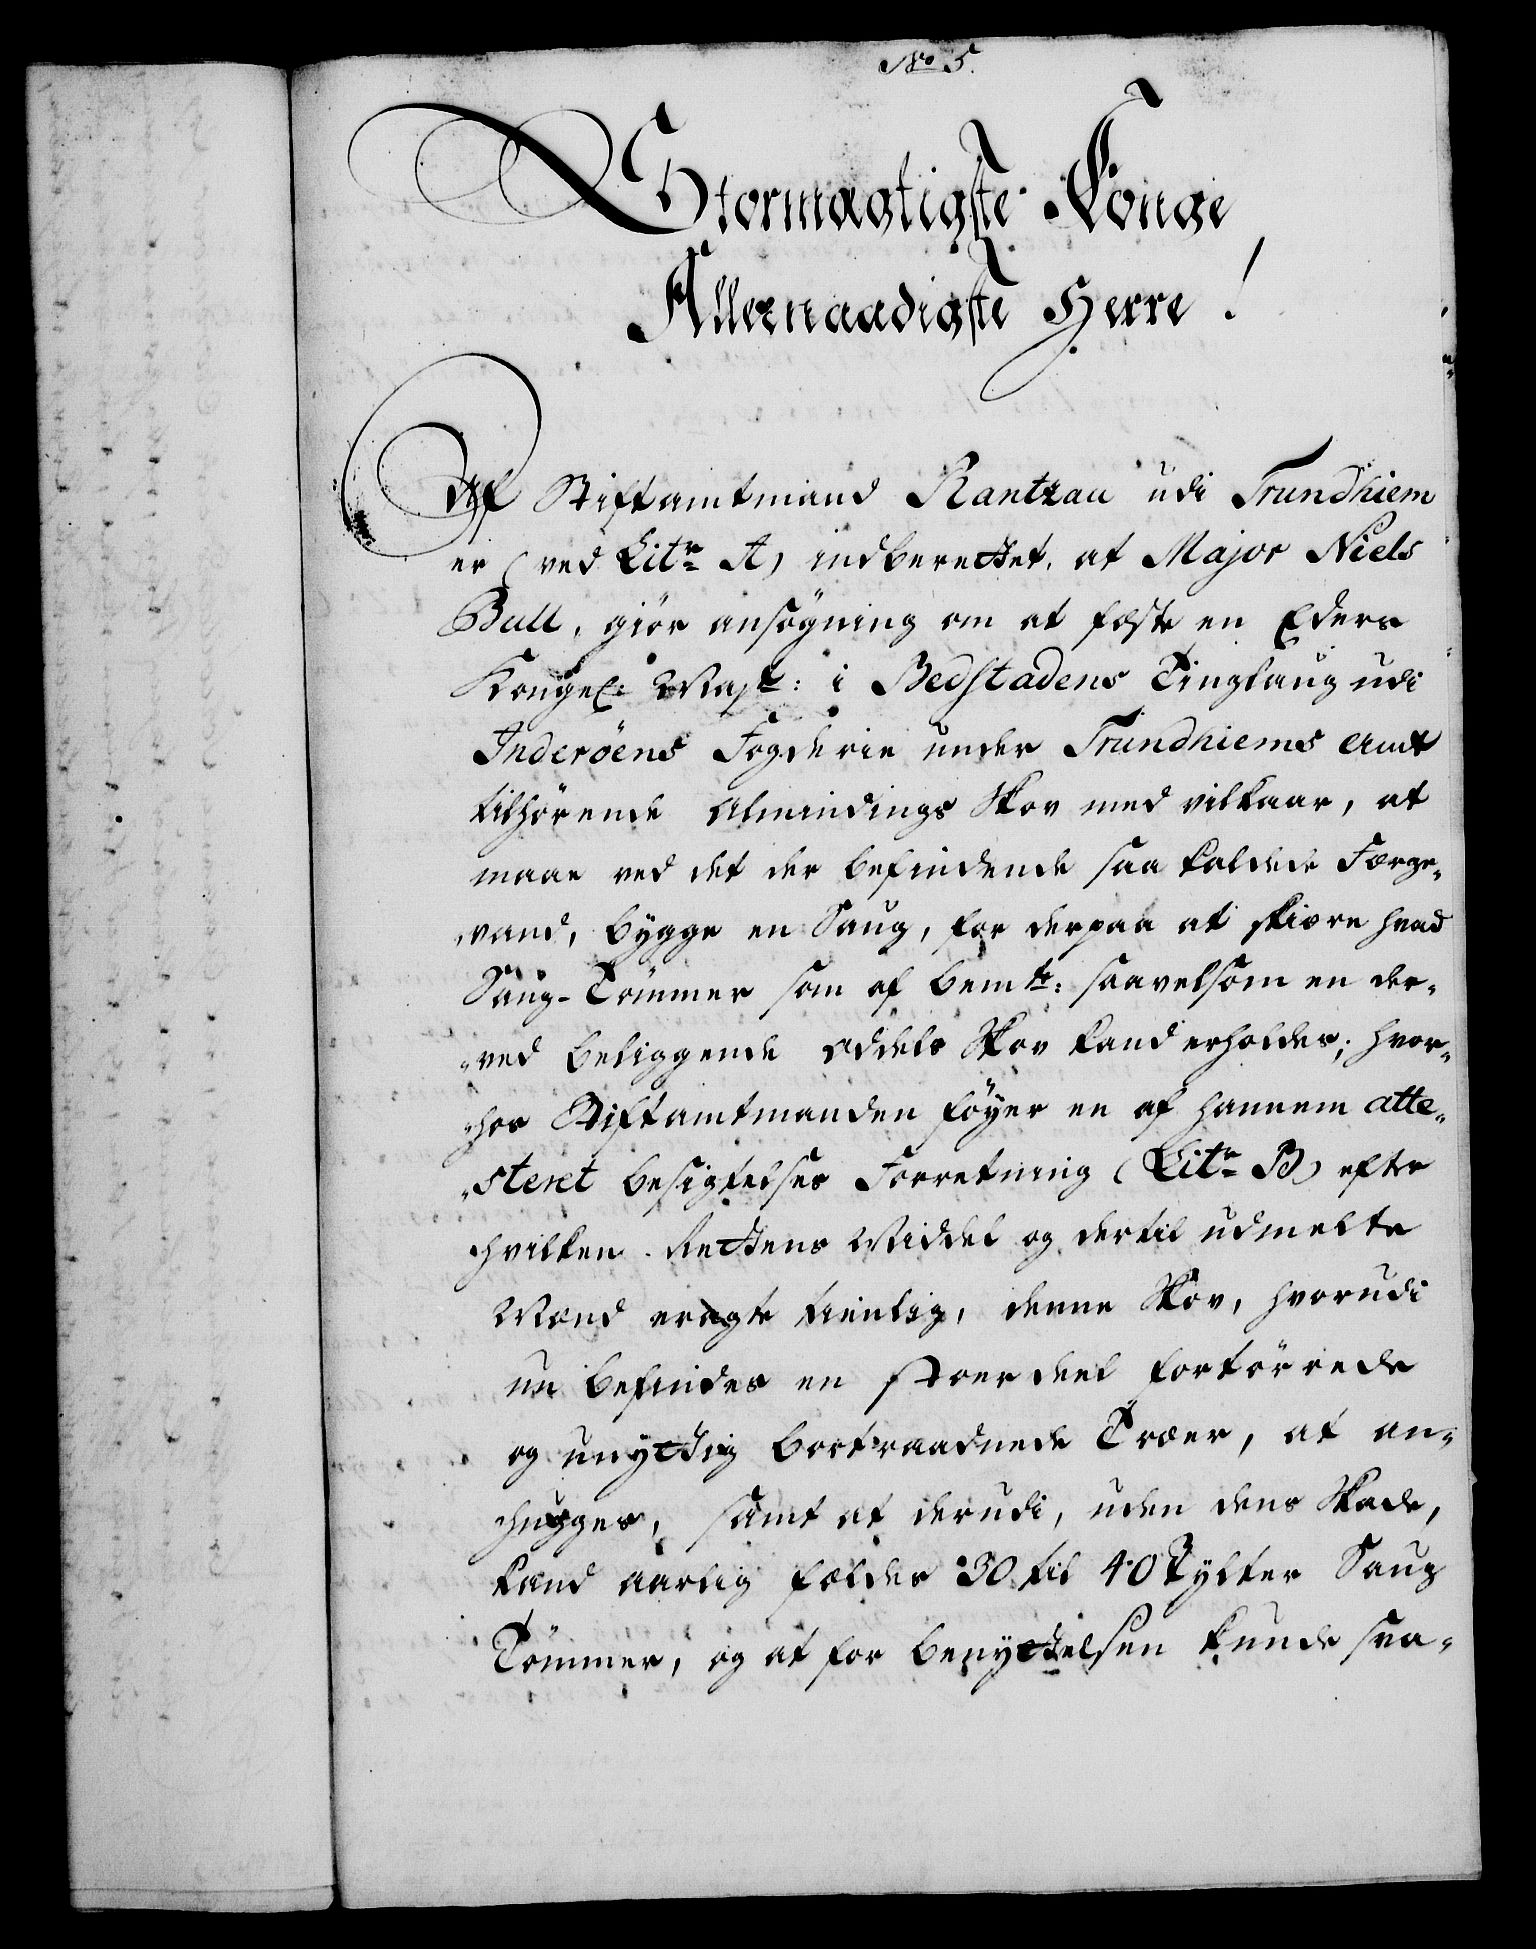 No 5.
Stormægtigste Konge
Allernaadigste Herre!
Af Stiftamtmand Rantzau udi Trundhiem
er (ved Litr A) indberettet, at Major Niels
Bull, giör ansögning om at fæste en Eders
Kongel: Mayt: i Bedstadens Tinglaug udi
Inderöens Fogderie under Trundhiems Amt
tilhörende Almindings Skov med vilkaar, at
maae ved det der befindende saa kaldede Færge„
„vand, bygge en Saug, for derpaa at skiære hvad
Saug-Tömmer som af bemte: saavelsom en der„
„ved beliggende Oddels Skov kand erholdes; hvor„
„hos Stiftamtmanden föyer en af hannem atte„
„steret besigtelses Forretning (Litr B) efter
hvilken Rettens Middel og dertil udmelte
Mænd eragte tienlig, denne Skov, hvorudi
nu befindes en stoer deel fortörrede
og unyttig bortraadnede Træer, at an„
hugges, samt at derudi, uden dens Skade,
kand aarlig fældes 30 til 40 Tylter Saug
Tömmer, og at for benyttelsen kunde sva„